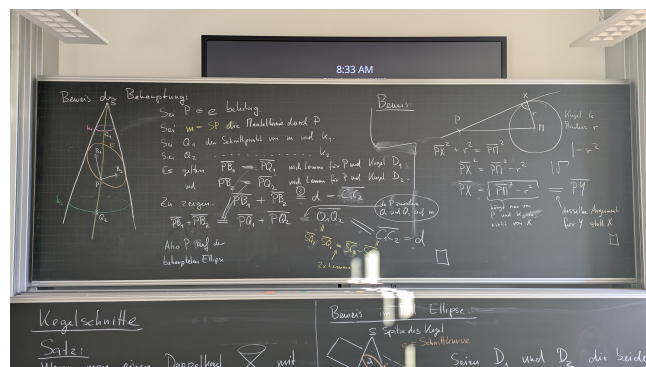 8:33 AM
Beweis der Behauptung:
Sei P ∈ e beliebig.
Sei m = SP die Mantellinie durch P
Sei Q₁ der Schnittpunkt von m und k₁.
Sei Q₂ k₂
Es gelten PB₁ = PQ₁ nach Lemma für P und Kugel D₁.
und PB₂ = PQ₂ nach Lemma für P und Kugel D₂.
Zu zeigen: PB₁ + PB₂ = d
PB₁ + PB₂ = PQ₁ + PQ₂ = Q₁Q₂
Also P auf der
behaupteten Ellipse
Beweis:
X
P
M
r
Kugel k
Radius r
PX² + r² = PM² | - r²
PX² = PM² - r² | √
PX = √PM² - r² = PY
hängt nur von
P und k
nicht von X
dasselbe Argument
für Y statt X.
Kegelschnitte
Satz:
Doppelkegel mit
Beweis im Ellipse.
S Spitze des Kegel
e = Schnittkurve
Seien D₁ und D₂ die beide